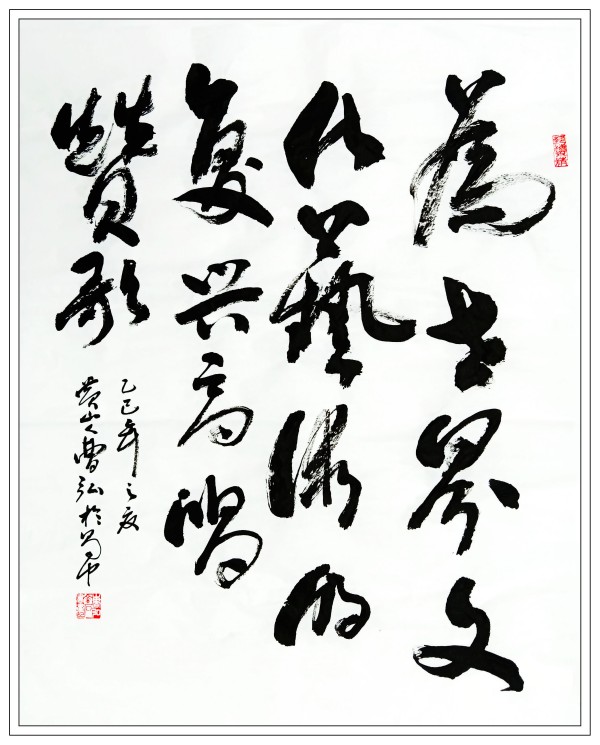 為世界文
化藝術的
复兴高唱
贊歌
乙巳年之夏
黄山人曹弘於蜀中